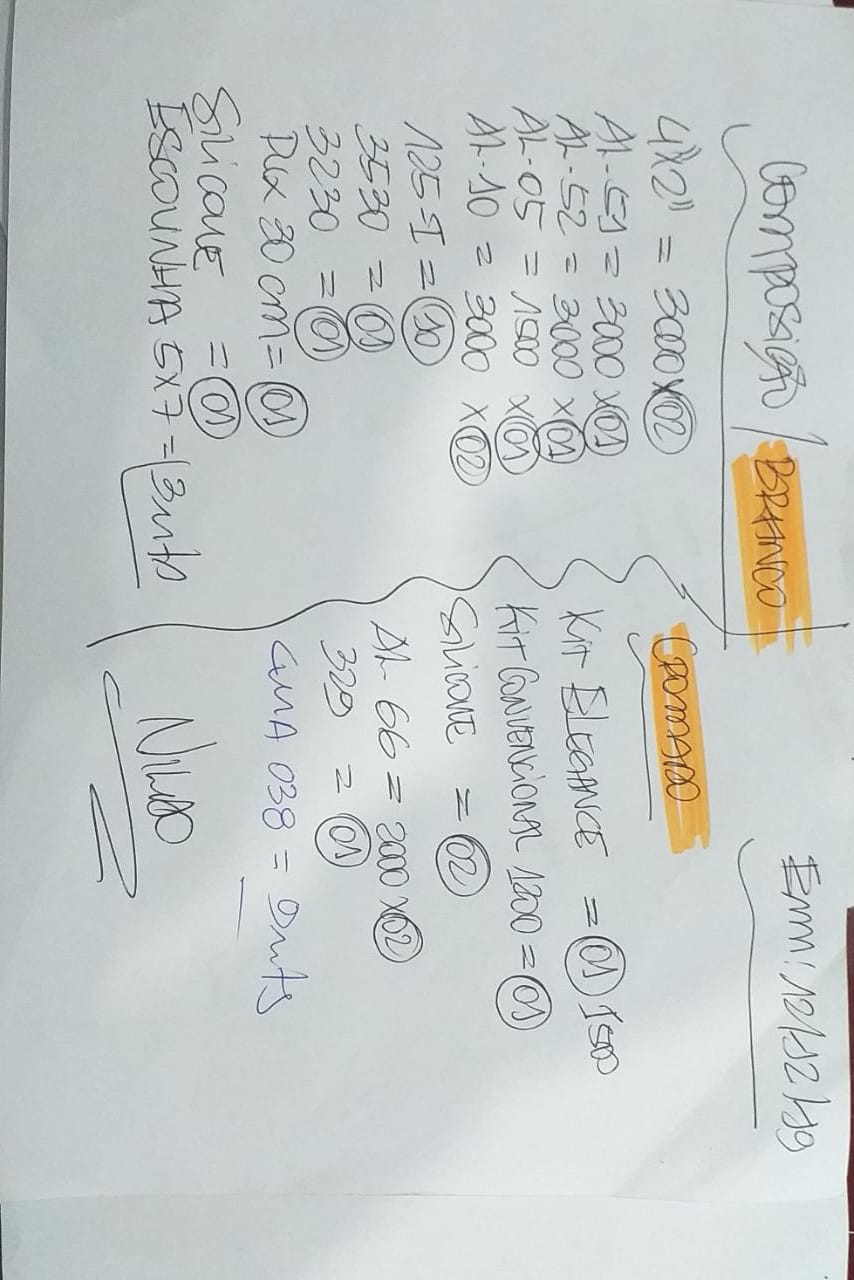 Composição / BRANCO
4x2" = 3000 x 02
AL-51 = 3000 x 01
AL-52 = 3000 x 01
AL-05 = 1500 x 01
AL-10 = 3000 x 02
1255 I = 10
3530 = 01
3230 = 01
Pux 30 cm = 01
Silicone = 01
ESCOVINHA 5x7 = 13 mts
CROMADO
Kit ELEGANCE = 01 1500
Kit CONVENCIONAL 1200 = 01
Silicone = 02
AL-66 = 2000 x 02
329 = 01
GUA 038 = 9 mts